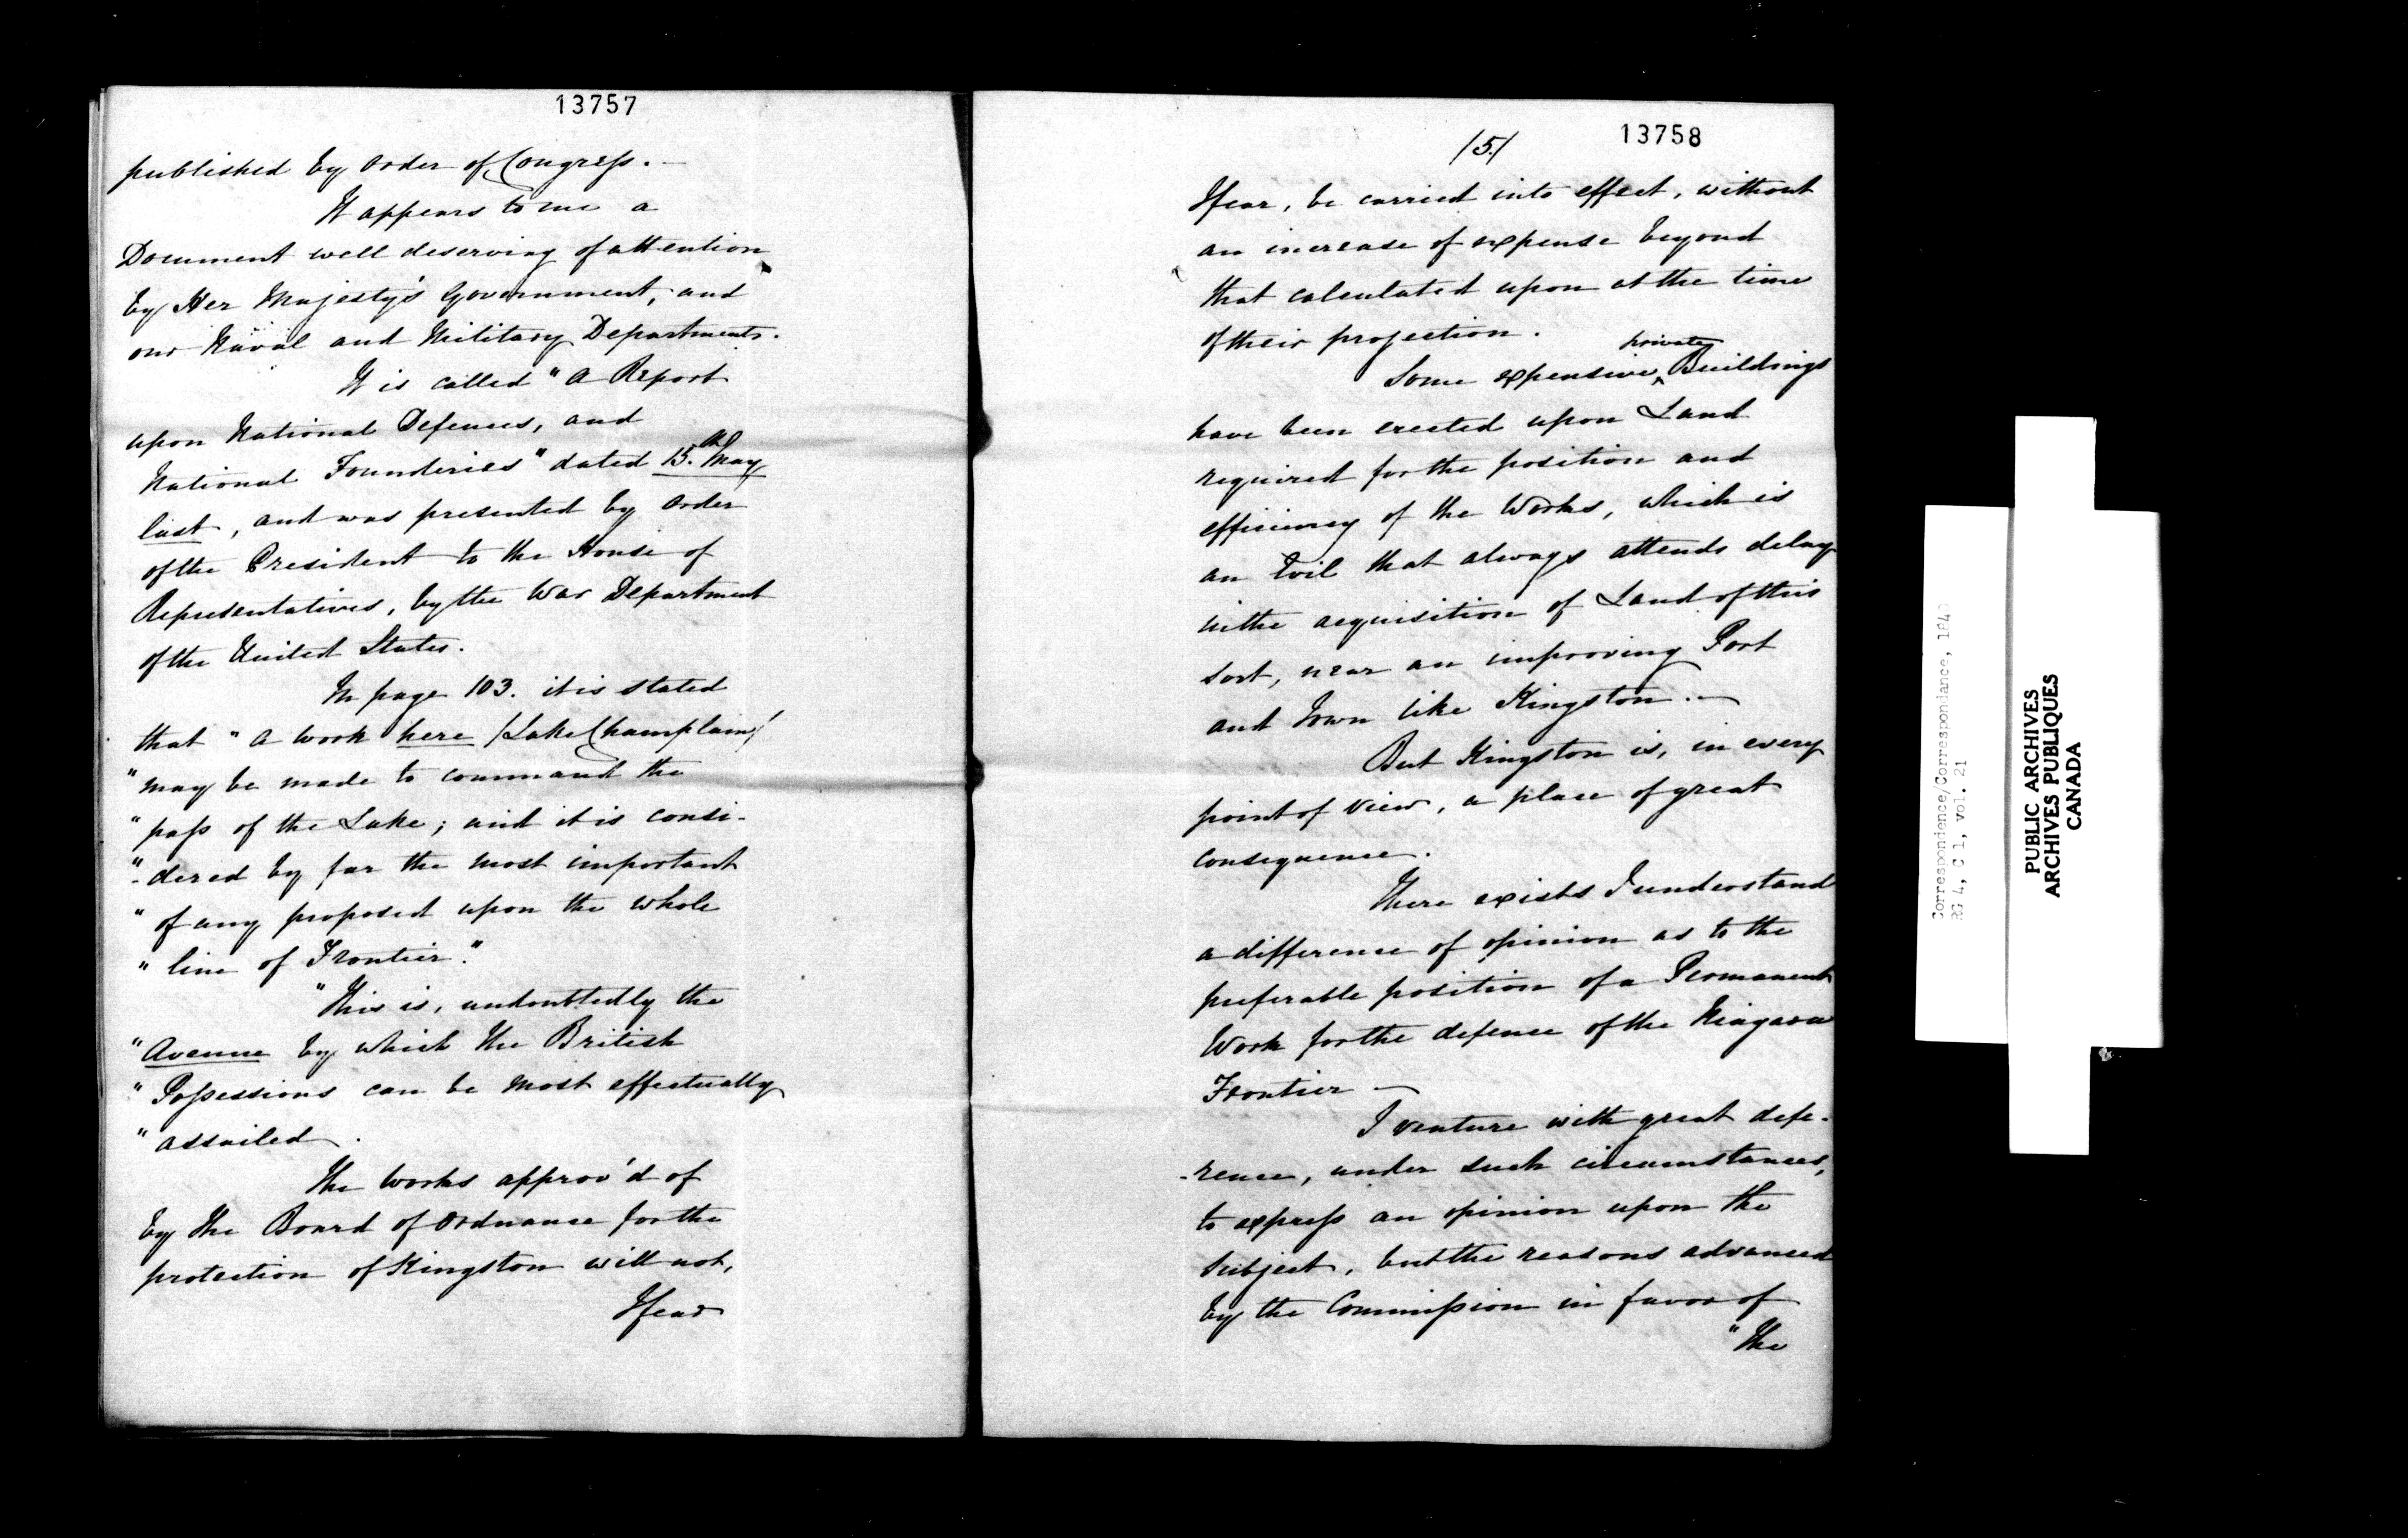 13757
published by order of Congress. —
It appears to me a
Document well deserving of attention
by Her Majesty's Government, and
our Naval and Military Departments.
It is called "A Report
upon National Defences, and
National Founderies" dated 15th May
last, and was presented by order
of the President to the House of
Representatives, by the War Department
of the United States.
In page 103. it is stated
that "a work here /Lake Champlain/
"may be made to command the
"pass of the Lake; and it is consi-
"-dered by far the most important
"of any proposed upon the whole
"line of Frontier."
"This is, undoubtedly the
"Avenue by which the British
"Possessions can be most effectually
"assailed.
The works approv'd of
by the Board of Ordnance for the
protection of Kingston will not,
I fear
/5./
13758
I fear, be carried into effect, without
an increase of expense beyond
that calculated upon at the time
of their projection.
Some expensive private Buildings
have been erected upon Land
required for the position and
efficiency of the Works, which is
an Evil that always attends delay
in the acquisition of Land of this
sort, near an improving Port
and Town like Kingston. —
But Kingston is, in every
point of view, a place of great
consequence.
There exists I understand
a difference of opinion as to the
preferable position of a Permanent
Work for the defence of the Niagara
Frontier —
I venture with great defe-
-rence, under such circumstances,
to express an opinion upon the
subject, but the reasons advanced
by the Commission in favor of
"the
Correspondence/Correspondance, 1840
RG 4, C 1, vol. 21
PUBLIC ARCHIVES
ARCHIVES PUBLIQUES
CANADA